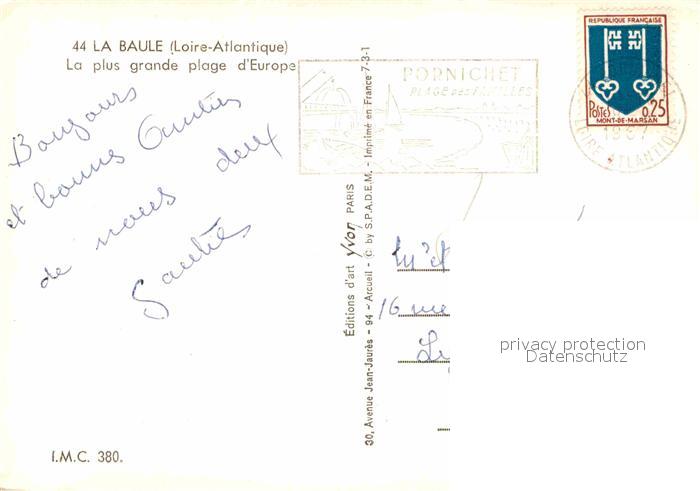 44 LA BAULE (Loire-Atlantique)
La plus grande plage d'Europe
Bonjours
et bonnes Amitiés
de nous deux
PORNICHET
PLAGE DES FAMILLES
REPUBLIQUE FRANÇAISE
Postes 0,25
MONT-DE-MARSAN
1967
LOIRE ATLANTIQUE
Éditions d'art Yvon PARIS
30, Avenue Jean-Jaurès - 94 - Arcueil - © by S.P.A.D.E.M. - Imprimé en France 7-3-1
16 rue
privacy protection
Datenschutz
I.M.C. 380.